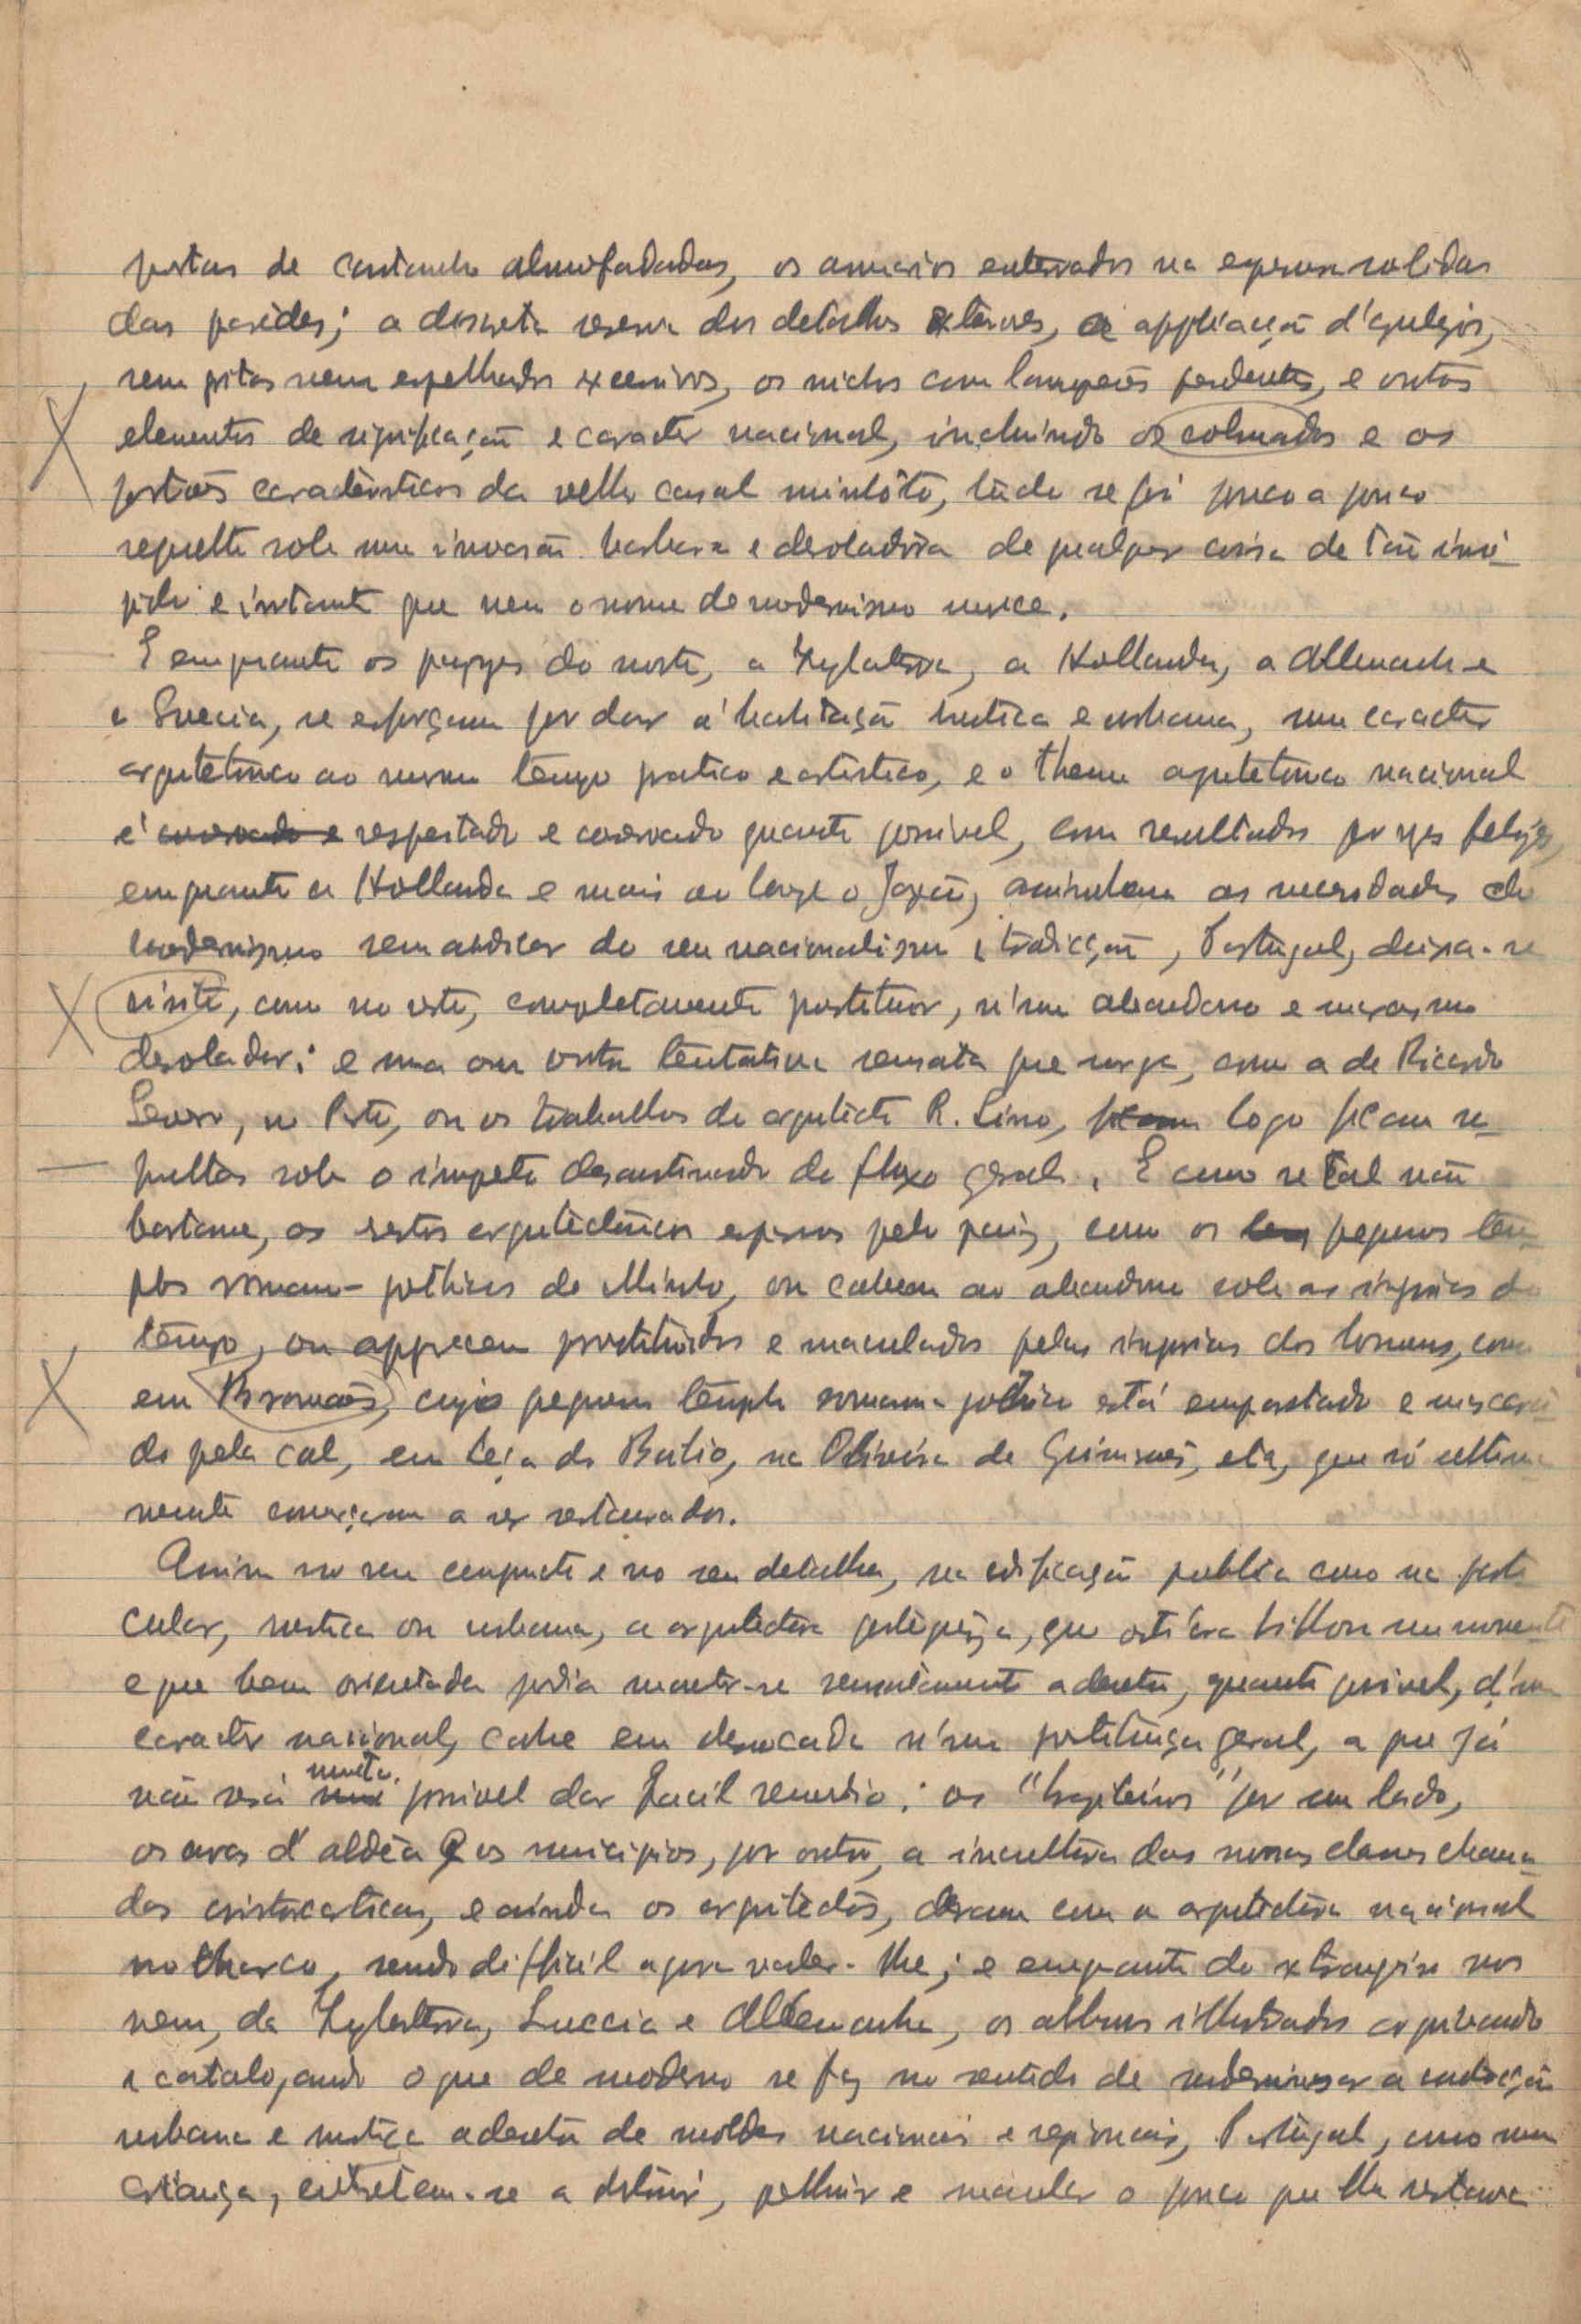 portas de castanho almofadadas, os armarios enterrados na espessura solida
das parêdes; a discreta reserva dos detalhes exteriores, a applicação d'azulejos,
sem gritos nem espelhados excessivos, os nichos com lampeões pendentes, e outros
elementos de significação e caracter nacional, incluindo os colmados e os
portões caracteristicos da velho casal minhôto, tudo se foi pouco a pouco
sepulto sob uma invasão barbara e desoladora de qualquer coisa de tão insi-
pido e irritante que nem o nome de modernismo merece.
E emquanto os payzes do norte, a Inglaterra, a Hollanda, a Allemanha e
a Suecia, se esforçam por dar á habitação rustica e urbana, um caracter
arquitetonico ao mesmo tempo pratico e artistico, e o thema arquitetonico nacional
é conservado e respeitado e conservado quanto possivel, com resultados por vezes felizes,
emquanto a Hollanda e mais ao longe o Japão, assimilam as necessidades do
modernismo sem abdicar do seu nacionalismo e tradicção, Portugal, deixa-se
n'isto, como no resto, completamente prostituir, n'um abandono e marasmo
desolador: e uma ou outra tentativa sensata que surge, como a de Ricardo
Severo, no Porto, ou os trabalhos do arquitecto R. Lino, ficam logo ficam se-
pultos sob o impeto desatinado do fluxo geral. E como se tal não
bastasse, os restos arquitectonicos esparsos pelo paiz, como os pequenos tem-
plos romano-gothicos do Minho, ou cahem ao abandono sob as injurias do
tempo, ou apparecem prostituidos e maculados pelas injurias dos homens, como
em cujo pequeno templo romano-gothico está empastado e mascara-
do pela cal, em Leça do Balio, na Oliveira de Guimarães, etc, que só ultima-
mente começaram a ser restaurados.
Assim no seu conjuncto e no seu detalhe, na edificação publica como na parti-
cular, rustica ou urbana, a arquitectura portugueza, que outr'ora brilhou um momento
e que bem orientada podia manter-se sensatamente a dentro, quanto possivel, d'um
caracter nacional, cahe em derrocada n'uma prostituição geral, a que já
não será muito possivel dar facil remedio: os "brazileiros" por um lado,
os curas d'aldêa e os municipios, por outro, a incultura das nossas classes chama-
das aristocraticas, e ainda os arquitectos, deram com a arquitectura nacional
no charco, sendo difficil agora valer-lhe; e emquanto do extrangeiro nos
vem, da Inglaterra, Suecia e Allemanha, os albuns illustrados arquivando
e catalogando o que de moderno se faz no sentido de modernisar a
urbana e rustica adentro de moldes nacionaes e regionaes, Portugal, como uma
criança, entretem-se a destruir, polluir e macular o pouco que lhe restava